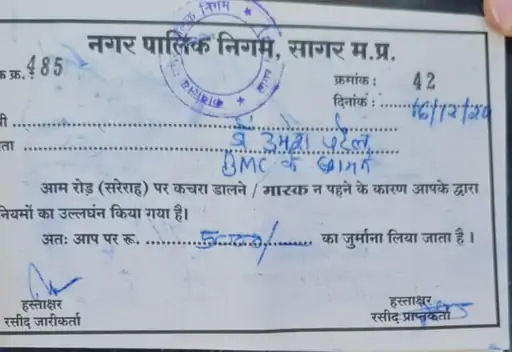 नगर पालिक निगम, सागर म.प्र.
क क्र. 485
क्रमांक : 42
दिनांक : 16/12/20
डॉ उमेश पटेल
BMC के सामने
आम रोड़ (सरेराह) पर कचरा डालने / मास्क न पहने के कारण आपके द्वारा
नियमों का उल्लघंन किया गया है।
अतः आप पर रू. 5000/ का जुर्माना लिया जाता है।
हस्ताक्षर
रसीद जारीकर्ता
हस्ताक्षर
रसीद प्राप्तकर्ता